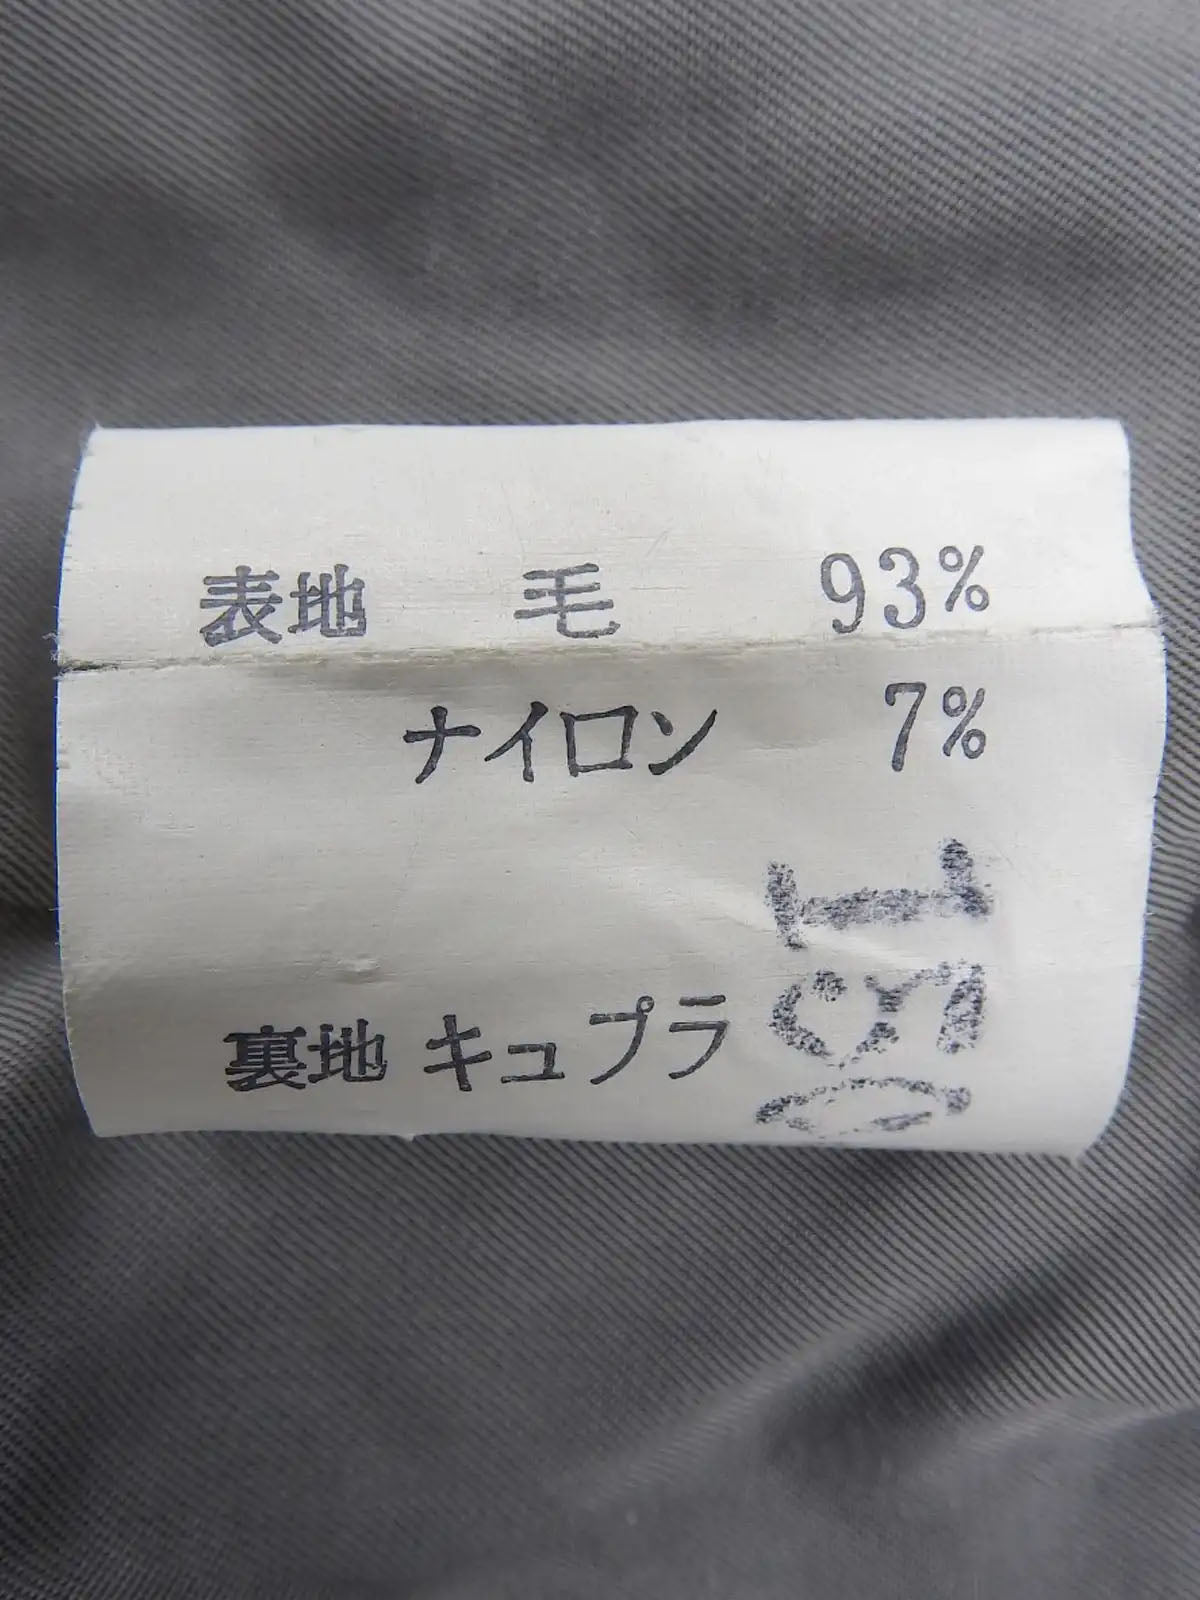 表地 毛 93%
ナイロン 7%
裏地 キュプラ
150